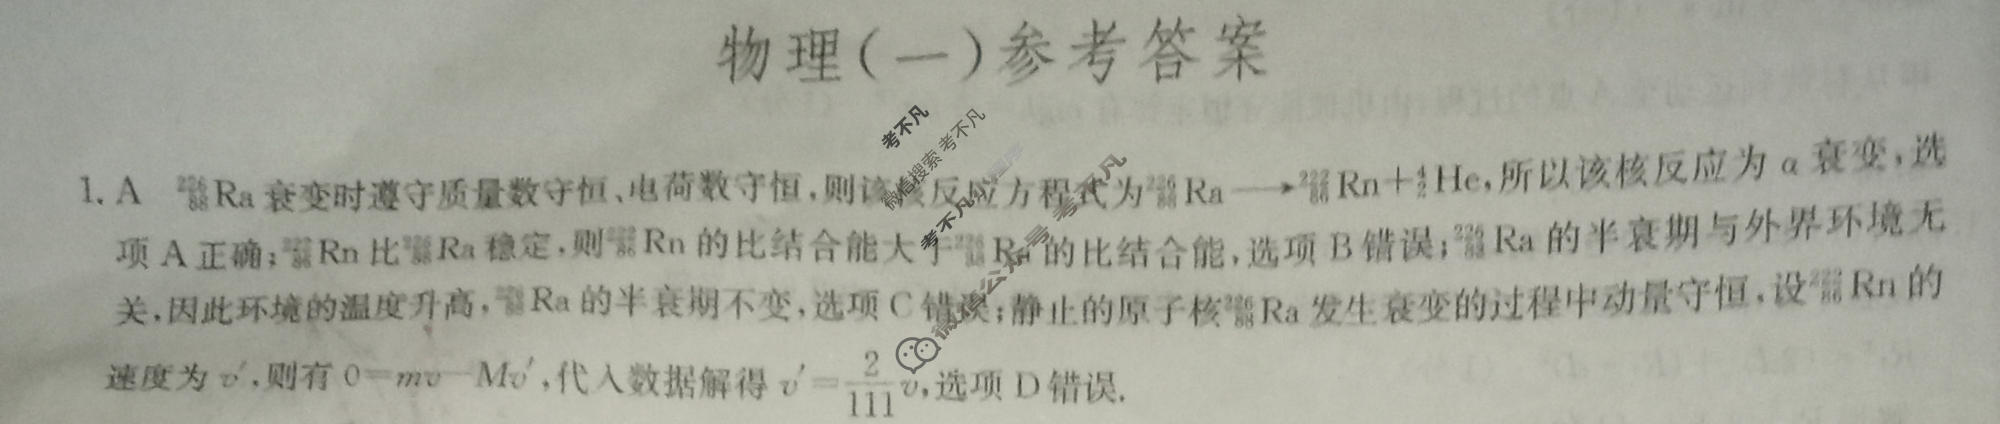 物理(一)参考答案
1. A  ²²⁶₈₈Ra衰变时遵守质量数守恒、电荷数守恒,则该核反应方程式为²²⁶₈₈Ra⟶²²²₈₆Rn+⁴₂He,所以该核反应为α衰变,选
项A正确;²²²₈₆Rn比²²⁶₈₈Ra稳定,则²²²₈₆Rn的比结合能大于²²⁶₈₈Ra的比结合能,选项B错误;²²⁶₈₈Ra的半衰期与外界环境无
关,因此环境的温度升高,²²⁶₈₈Ra的半衰期不变,选项C错误;静止的原子核²²⁶₈₈Ra发生衰变的过程中动量守恒,设²²²₈₆Rn的
速度为v′,则有0=mv-Mv′,代入数据解得v′=2/111 v,选项D错误.
考不凡
微信搜索 考不凡
考不凡
考不凡